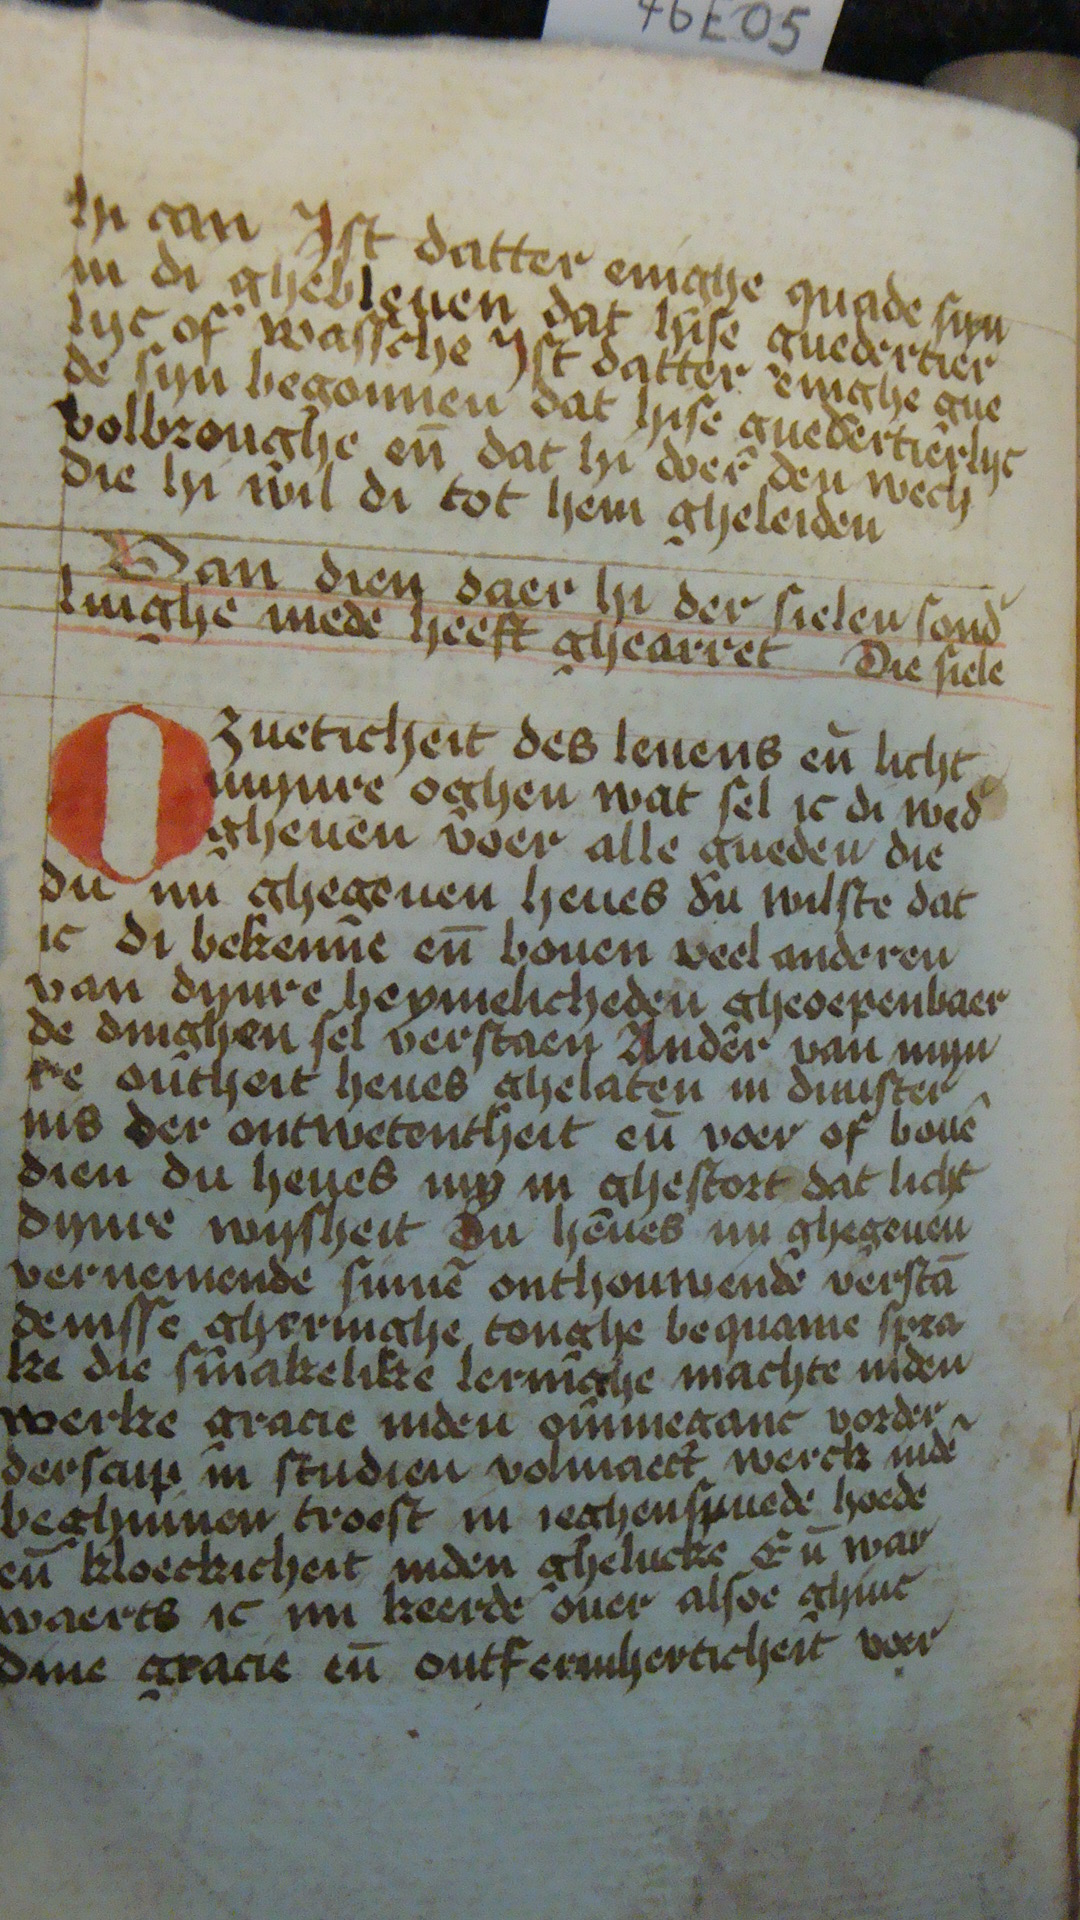 76E05
hi can Ist datter enighe quade sijn
in di ghebleuen dat hise guedertier
lijc of wassche Ist datter enighe gue
de sijn begonnen dat hise guedertierlijc
volbroughe eñ dat hi doer den wech
die hi wil di tot hem gheleiden
Van dien daer hi der sielen sond̄
linghe mede heeft ghearret Die siele
O zueticheit des leuens eñ licht
mijnre oghen wat sel ic di wed̄
gheuen voer alle gueden die
du mi ghegeuen heues du wilste dat
ic di bekenne eñ bouen veel anderen
van dijnre heymelicheden gheoepenbaer
de dinghen sel verstaen Ander van mijn
re outheit heues ghelaten in duuster
nis der ontwetentheit eñ voer of bouē
dien du heues my in ghestort dat licht
dijnre wijsheit Du heues mi ghegeuen
vernemende sinnē onthouwende verstā
denisse gheringhe tonghe bequame spra
ke die smakelike leringhe machte inden
werke gracie inden ommeganc vorder
derscap in studien volmaect werck indē
beghinnen troest in ieghenspuede hoede
eñ kloeckicheit inden ghelucke Eñ war
waerts ic mi keerde ouer alsoe ghinc
dine gracie eñ ontfermherticheit voer